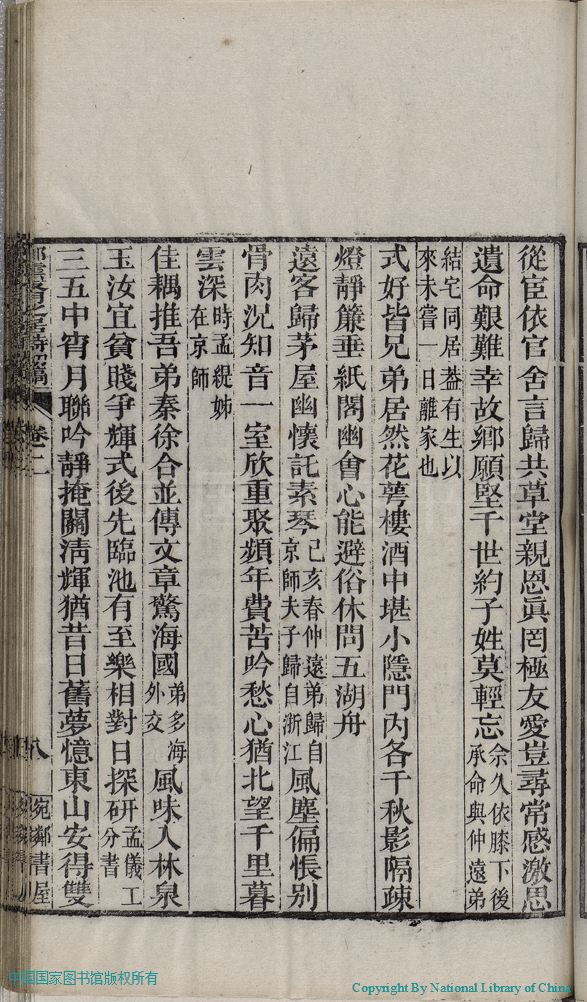 從宦依官舍言歸共草堂親恩真罔極友愛豈尋常感激思
遺命艱難幸故鄉願堅千世約子姓莫輕忘余久依膝下後承命與仲遠弟
結宅同居葢有生以來未嘗一日離家也
式好皆兄弟居然花萼樓酒中堪小隱門內各千秋影隔疎
燈靜簾垂紙閣幽會心能避俗休問五湖舟
遠客歸茅屋幽懷託素琴己亥春仲遠弟歸自京師夫子歸自浙江風塵偏悵別
骨肉況知音一室欣重聚頻年費苦吟愁心猶北望千里暮
雲深時孟緹姊在京師
佳耦推吾弟秦徐合並傳文章驚海國弟多海外交風味入林泉
玉汝宜貧賤爭輝式後先臨池有至樂相對日探研孟儀工分書
三五中宵月聯吟靜掩關清輝猶昔日舊夢憶東山安得雙
卷二
八
宛鄰書屋
中国国家图书馆版权所有
Copyright By National Library of China